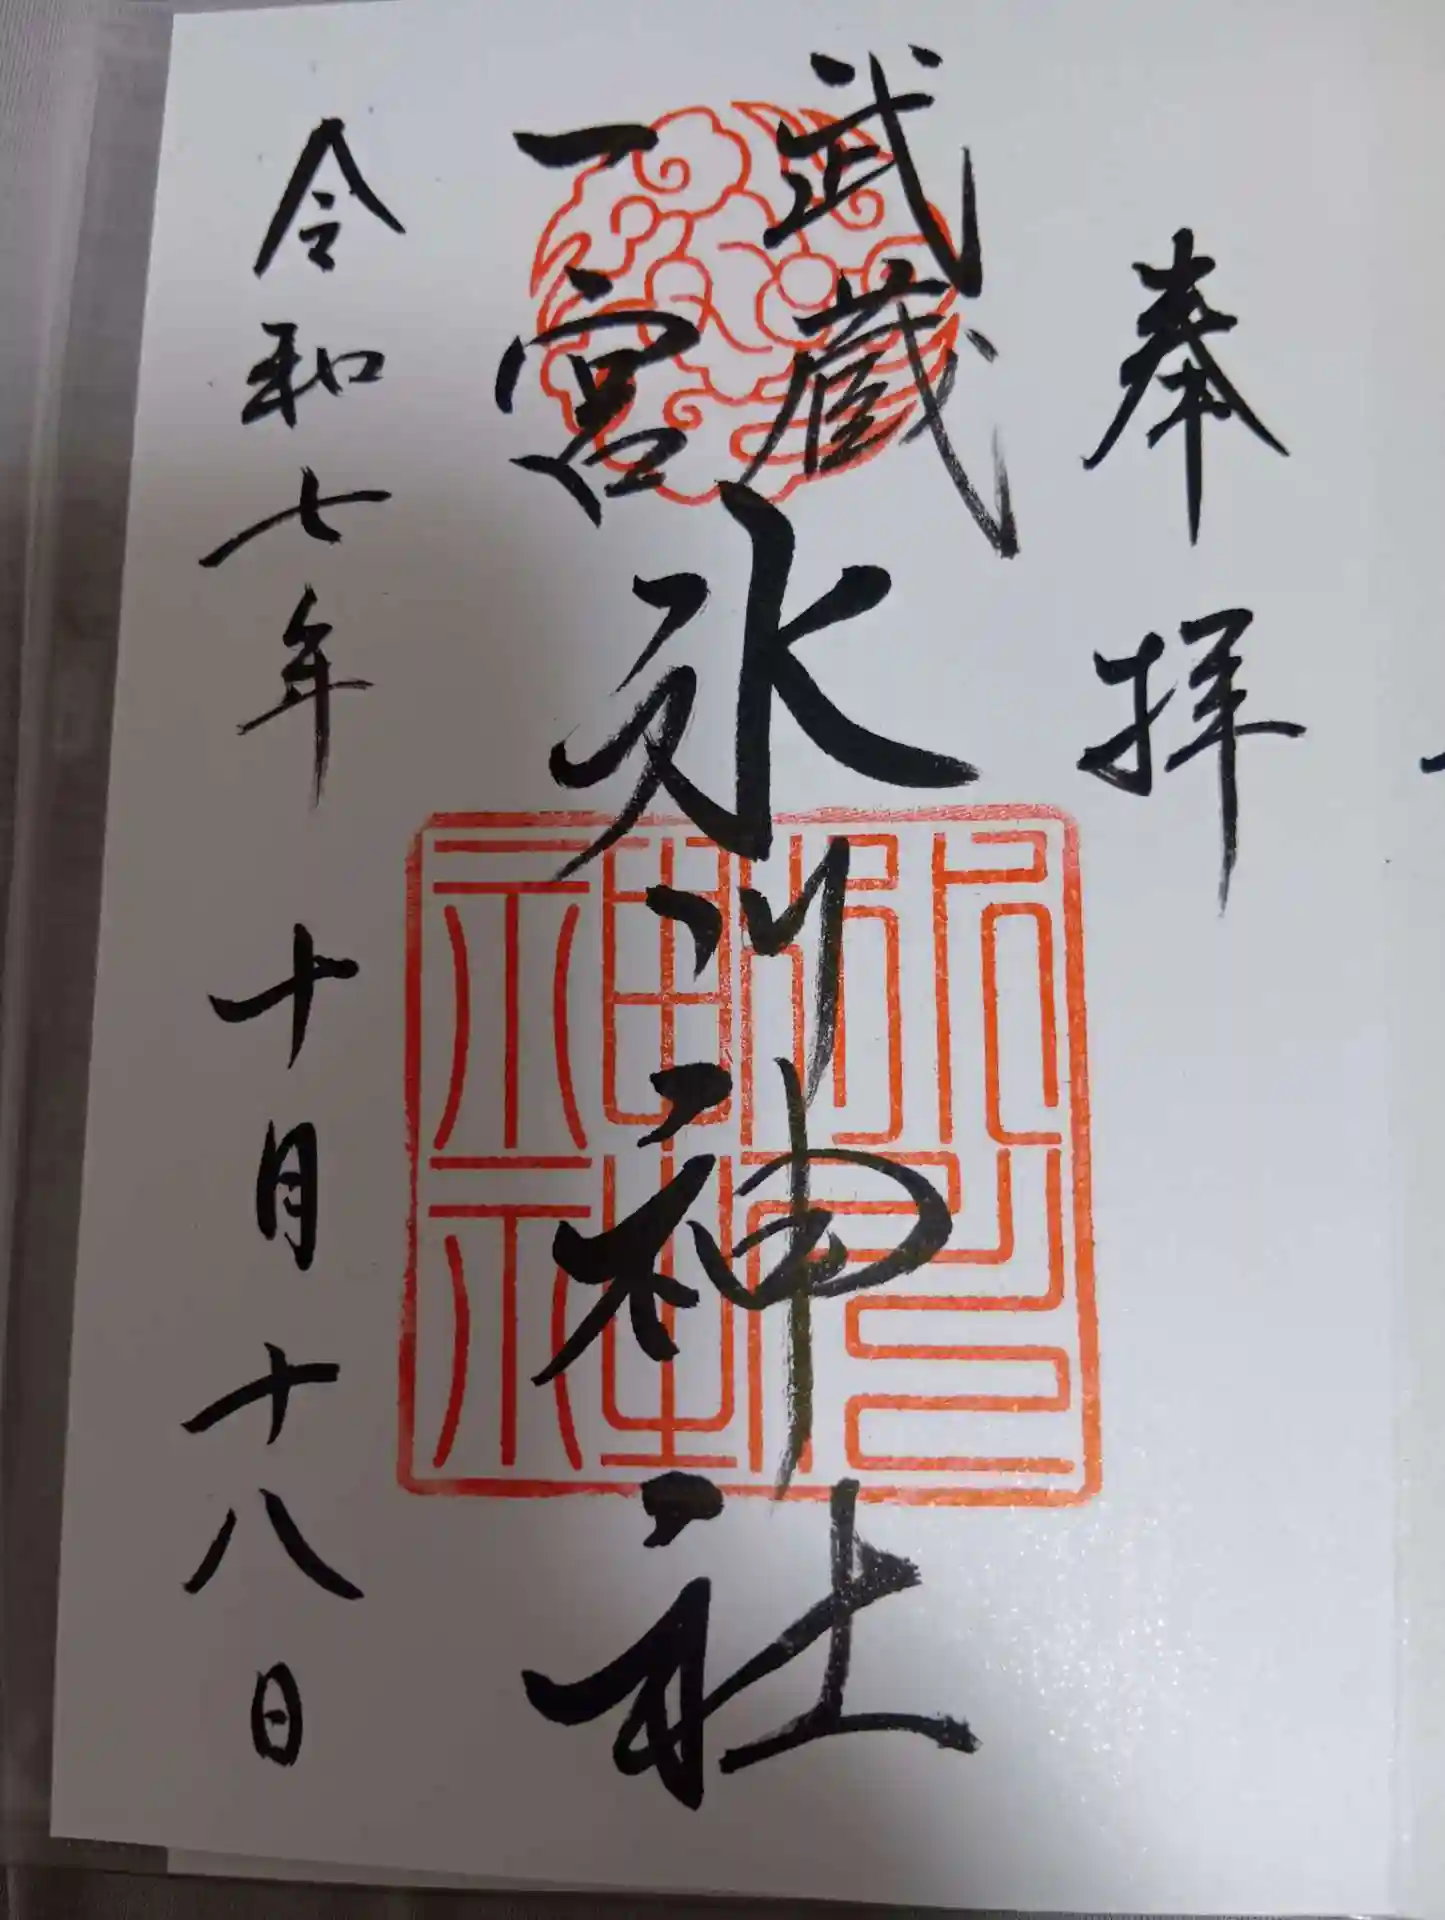 奉拝
武蔵
一宮
氷川神社
令和七年 十月十八日